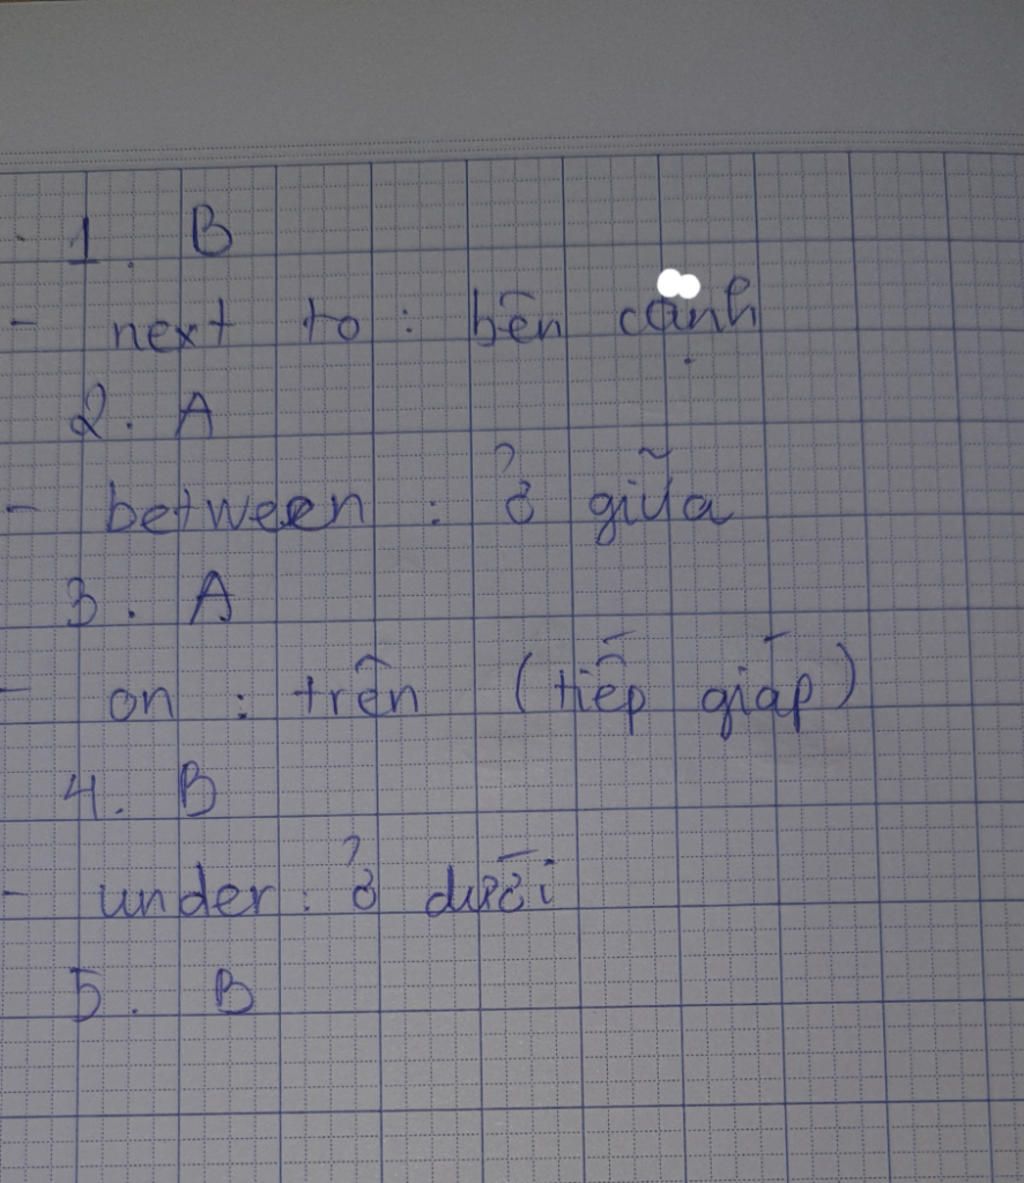 1. B
- next to : bên cạnh
2. A
- between : ở giữa
3. A
- on : trên (tiếp giáp)
4. B
- under : ở dưới
5. B